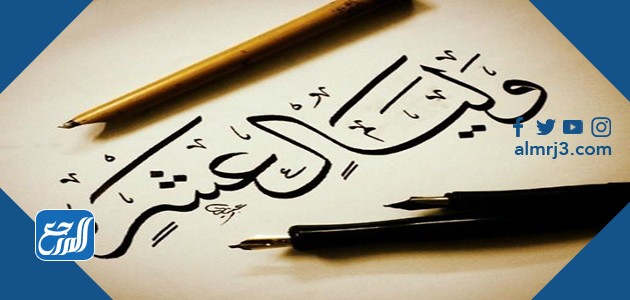 وليالٍ عشر
almrj3.com
المرجع